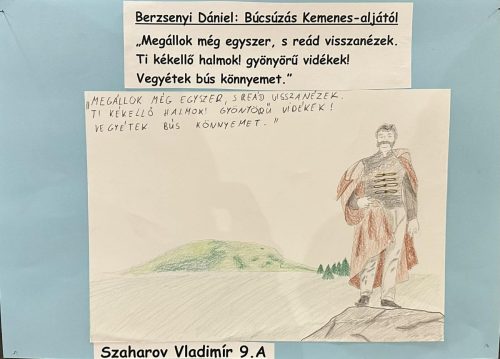 Berzsenyi Dániel: Búcsúzás Kemenes-aljától
„Megállok még egyszer, s reád visszanézek.
Ti kékellő halmok! gyönyörű vidékek!
Vegyétek bús könnyemet.”
„MEGÁLLOK MÉG EGYSZER, S REÁD VISSZANÉZEK.
TI KÉKELLŐ HALMOK! GYÖNYÖRŰ VIDÉKEK!
VEGYÉTEK BÚS KÖNNYEMET.”
Szaharov Vladimír 9.A